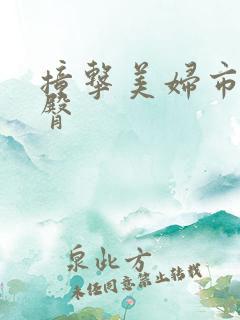 撞擊美婦市
臀
泉此方
未经同意禁止转载